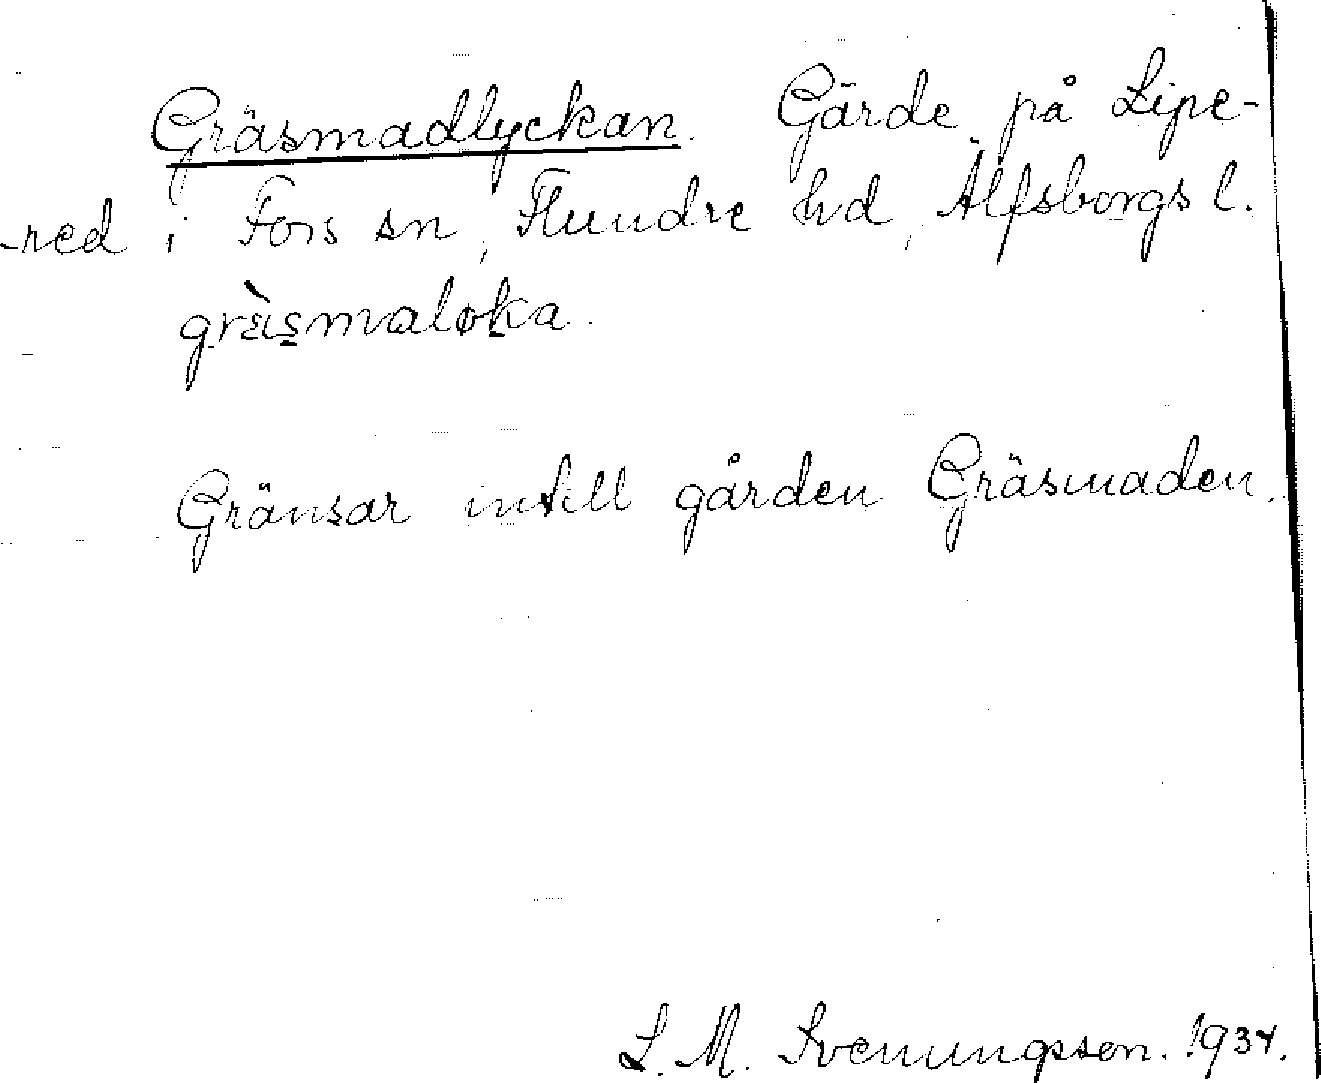 Gräsmadlyckan. Gärde på Lipe-
-red i Fors sn, Flundre hd, Älfsborgs l.
grä̀smaloka.
Gränsar intill gården Gräsmaden.
L. M. Svenungsson. 1934.